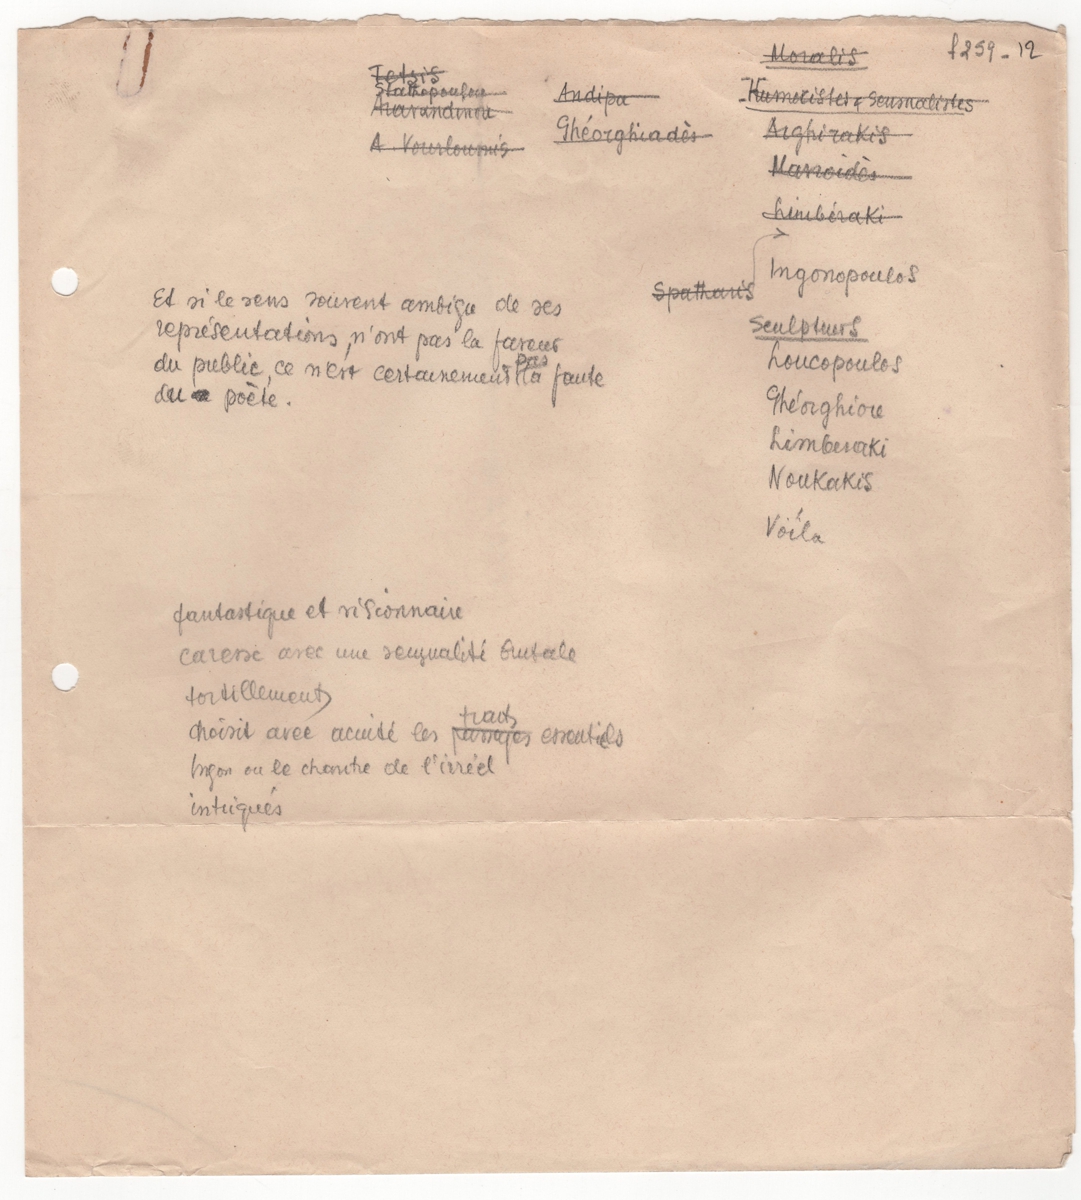 f259-12
Moralis
Tetsis
Stathopoulou
Maravdinou
A Vourloumis
Andipa
Ghéorghiadès
Humoristes & Journalistes
Arghirakis
Limbéraki
Spatharis
Ingonopoulos
Sculpteurs
Loucopoulos
Ghéorghiou
Limberaki
Noukakis
Voïla
Et si le sens souvent ambigu de ses
représentations, n'ont pas la faveur
du public, ce n'est certainement pas la faute
du poète.
fantastique et visionnaire
caresse avec une sensualité brutale
tortillements
choisit avec acuité les passages traits essentiels
Ingon ou le chantre de l'irréel
intriqués